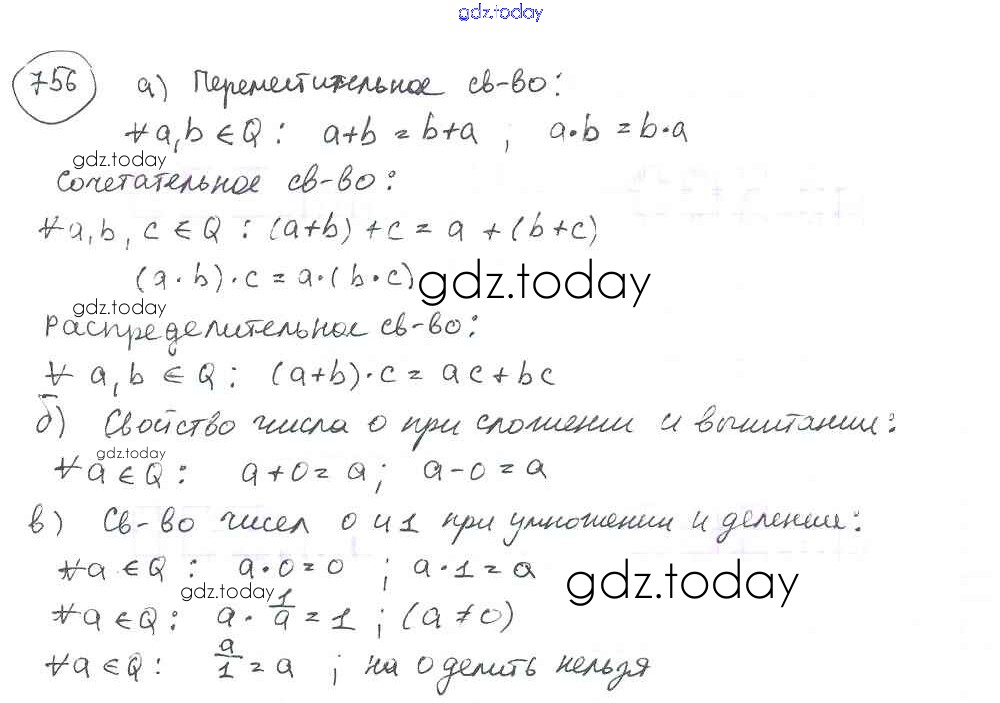 gdz.today
756 а) Переместительное св-во:
∀a,b ∈ Q : a+b = b+a ; a·b = b·a
gdz.today
Сочетательное св-во:
∀a,b,c ∈ Q : (a+b)+c = a+(b+c)
(a·b)·c = a·(b·c)
gdz.today
gdz.today
Распределительное св-во:
∀ a,b ∈ Q : (a+b)·c = ac+bc
б) Свойство числа 0 при сложении и вычитании:
gdz.today
∀a ∈ Q : a+0=a; a-0=a
в) Св-во чисел 0 и 1 при умножении и делении:
∀a ∈ Q : a·0=0 ; a·1=a
gdz.today
gdz.today
∀a ∈ Q : a·1/a = 1 ; (a≠0)
∀a ∈ Q : a/1 = a ; на 0 делить нельзя